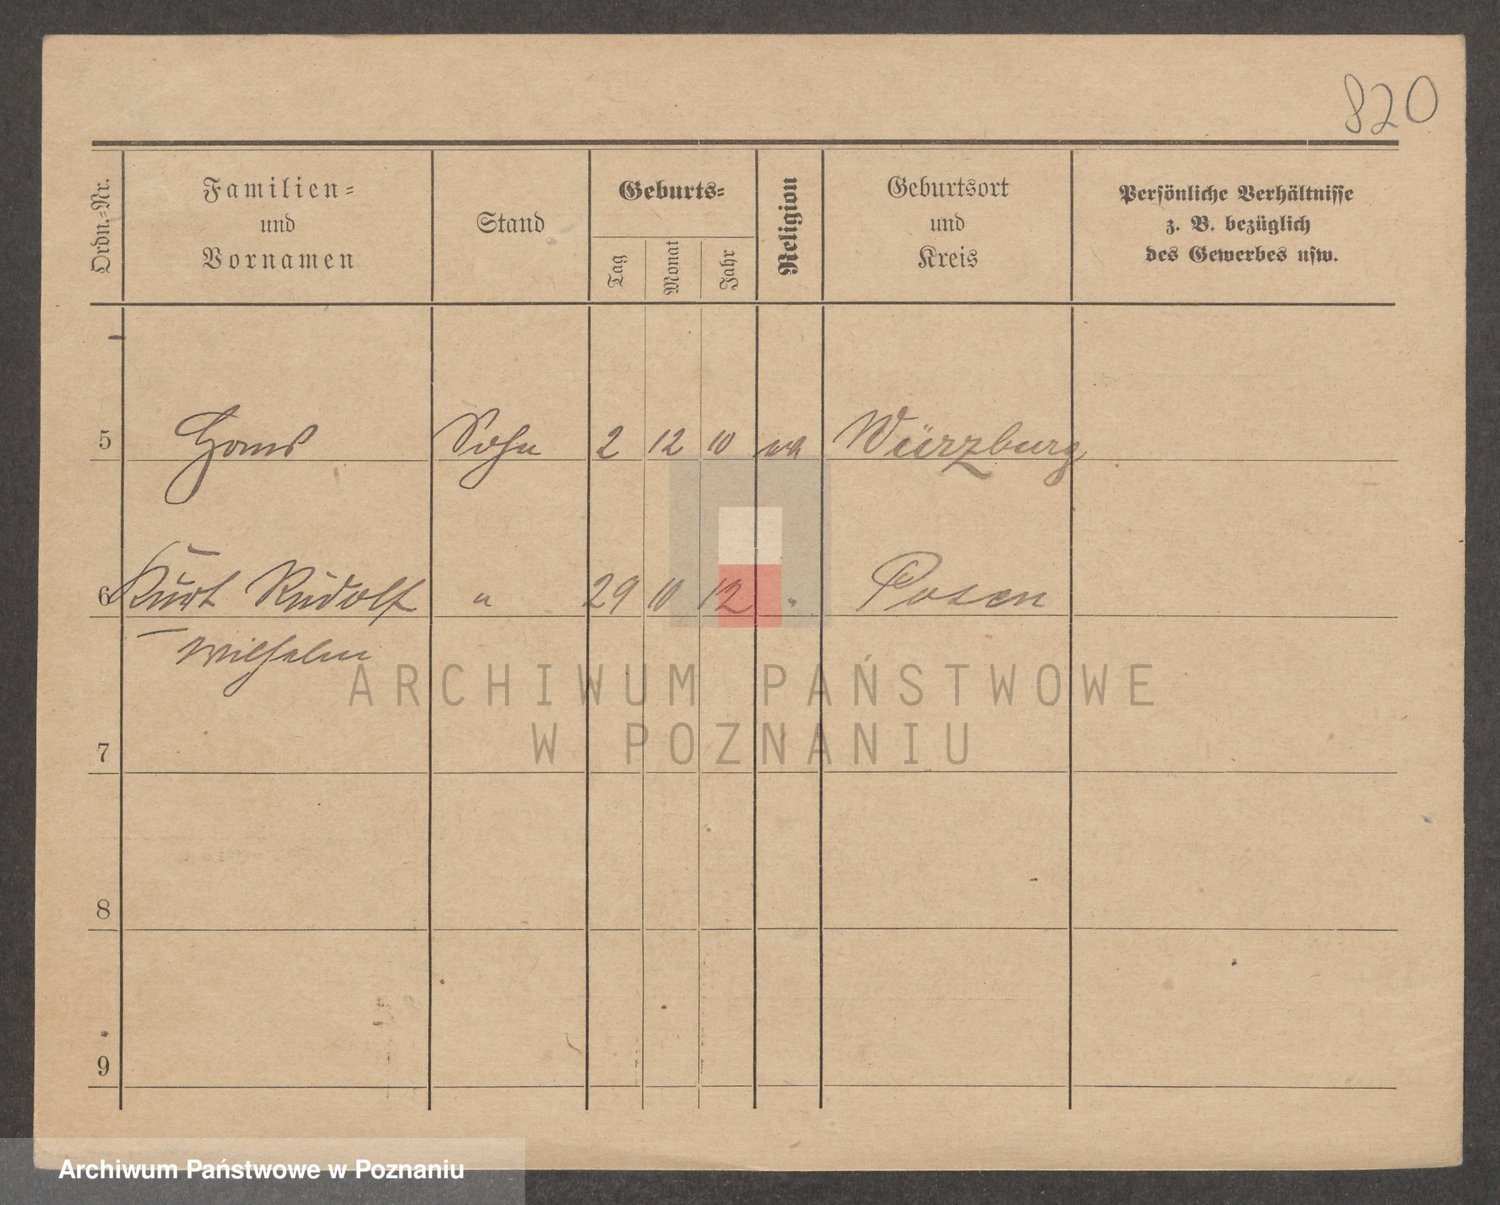 820
Ordn.-Nr.
Familien-
und
Vornamen
Stand
Geburts-
Tag
Monat
Jahr
Religion
Geburtsort
und
Kreis
Persönliche Verhältnisse
z. B. bezüglich
des Gewerbes usw.
5 Hans Sohn 2 12 10 Würzburg
6 Kurt Rudolf " 29 10 12 " Posen
Wilhelm
ARCHIWUM PAŃSTWOWE
W POZNANIU
7
8
9
Archiwum Państwowe w Poznaniu